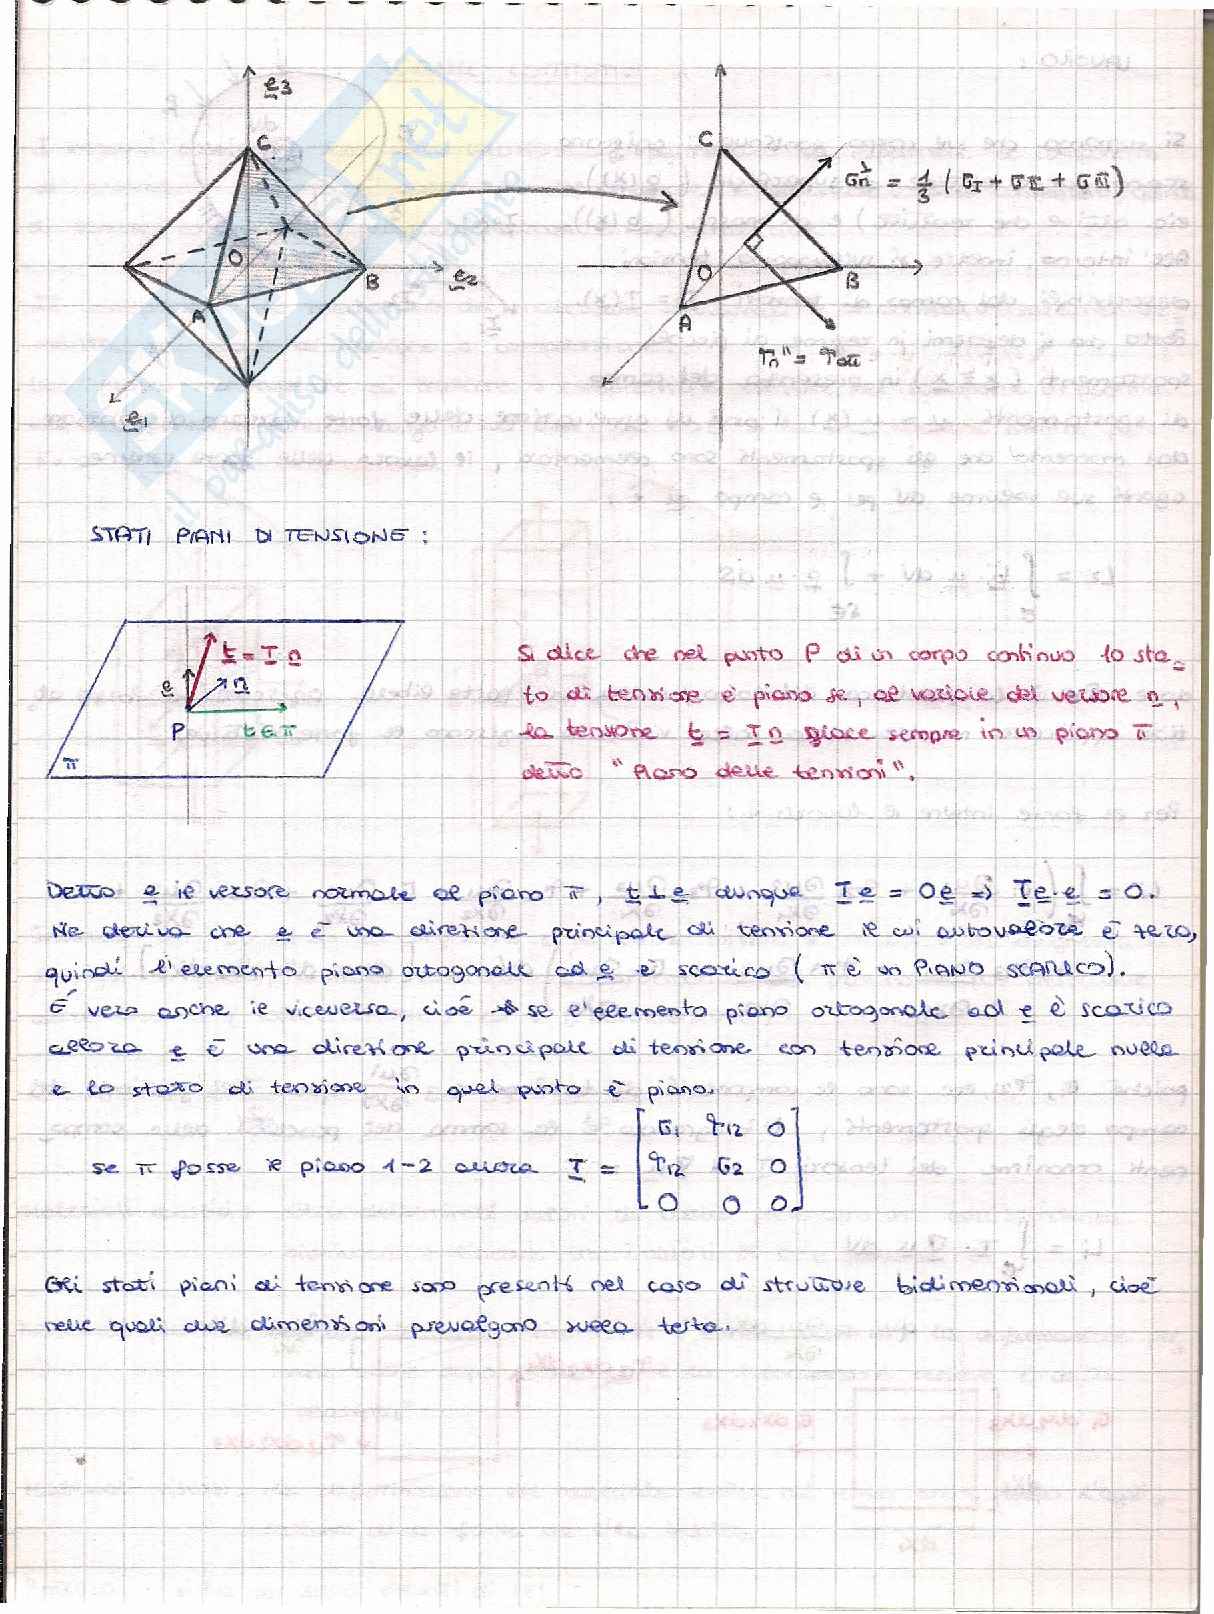 e3
C
O
B
e2
A
e1
C
σn⊥ = 1/3 (σI + σII + σIII)
O
B
A
τn" = τott
il paradiso dello studente
STATI PIANI DI TENSIONE :
t = T n
e
n
P
t ∈ π
π
Si dice che nel punto P di un corpo continuo lo sta=
to di tensione è piano se, al variare del versore n,
la tensione t = T n giace sempre in un piano π
detto "Piano delle tensioni".
Detto e il versore normale al piano π, t ⊥ e dunque T e = 0e => T e · e = 0.
Ne deriva che e è una direzione principale di tensione il cui autovalore è zero,
quindi l'elemento piano ortogonale ad e è scarico ( π è un PIANO SCARICO).
E' vero anche il viceversa, cioè se l'elemento piano ortogonale ad e è scarico
allora e è una direzione principale di tensione con tensione principale nulla
e lo stato di tensione in quel punto è piano.
se π fosse il piano 1-2 allora T = [σ1 τ12 0
τ12 σ2 0
0 0 0]
Gli stati piani di tensione sono presenti nel caso di strutture bidimensionali, cioè
nelle quali due dimensioni prevalgono sulla terza.